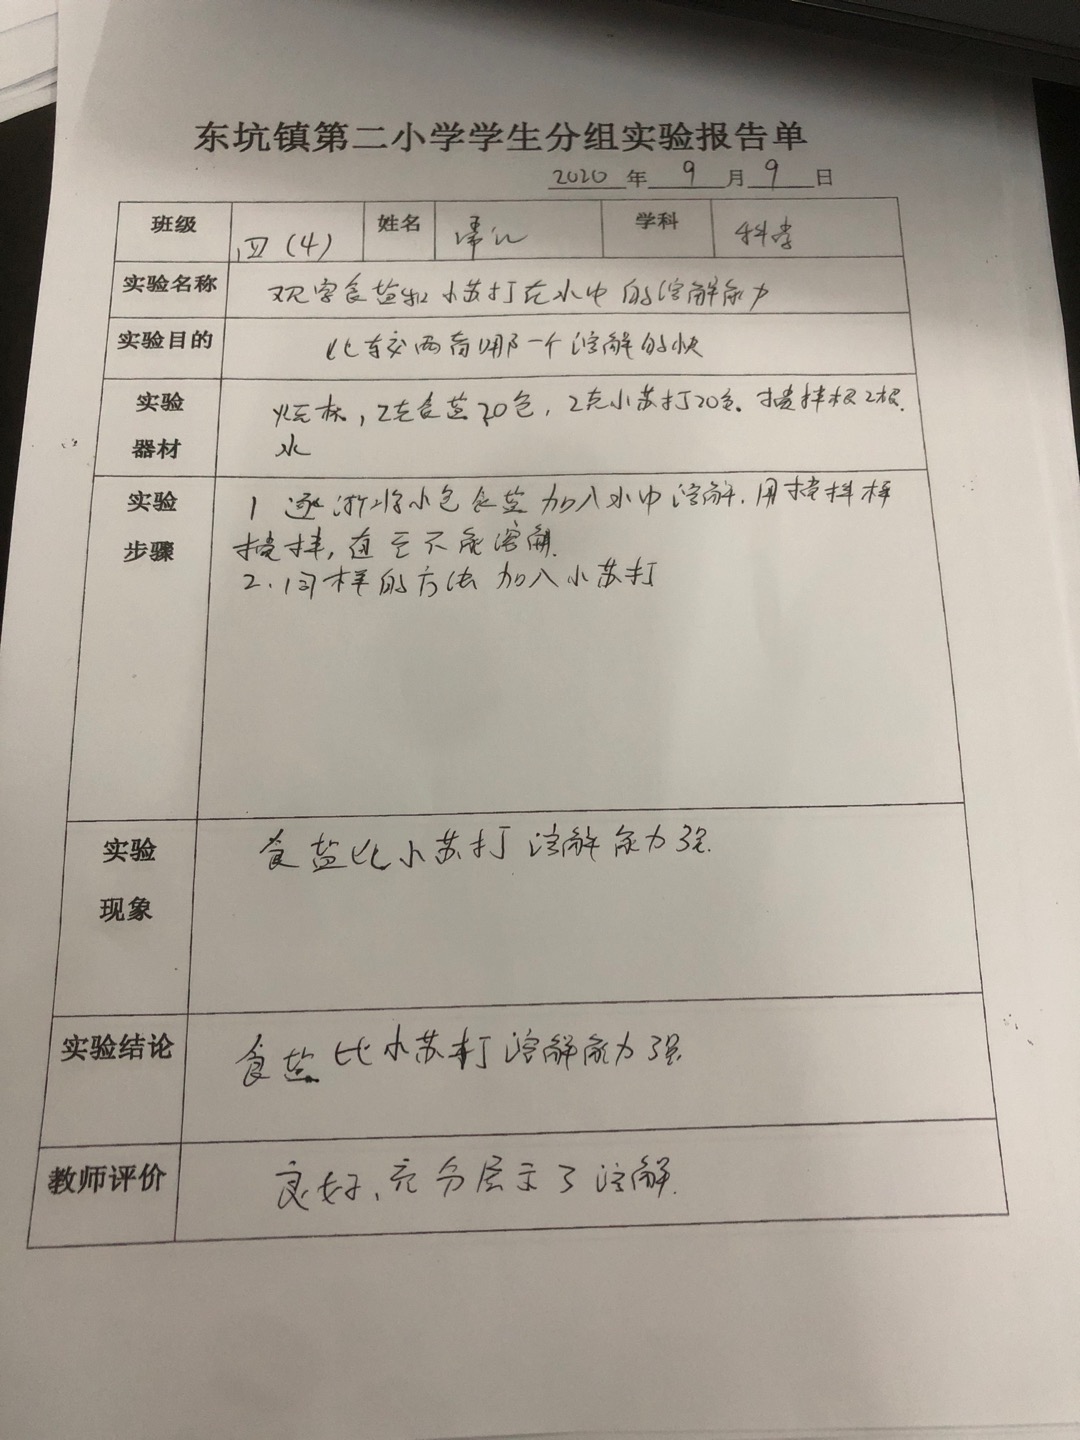 东坑镇第二小学学生分组实验报告单
2020年9月9日
班级 四(4) 姓名 学科 科学
实验名称 观察食盐和小苏打在水中的溶解能力
实验目的 比较两者哪一个溶解的快
实验器材 烧杯，2克食盐20包，2克小苏打20包．搅拌棍2根．
水
实验步骤 1 逐渐将小包食盐加入水中溶解．用搅拌棒
搅拌，直至不能溶解．
2．同样的方法加入小苏打
实验现象 食盐比小苏打溶解能力强．
实验结论 食盐比小苏打溶解能力强
教师评价 良好、充分展示了溶解．